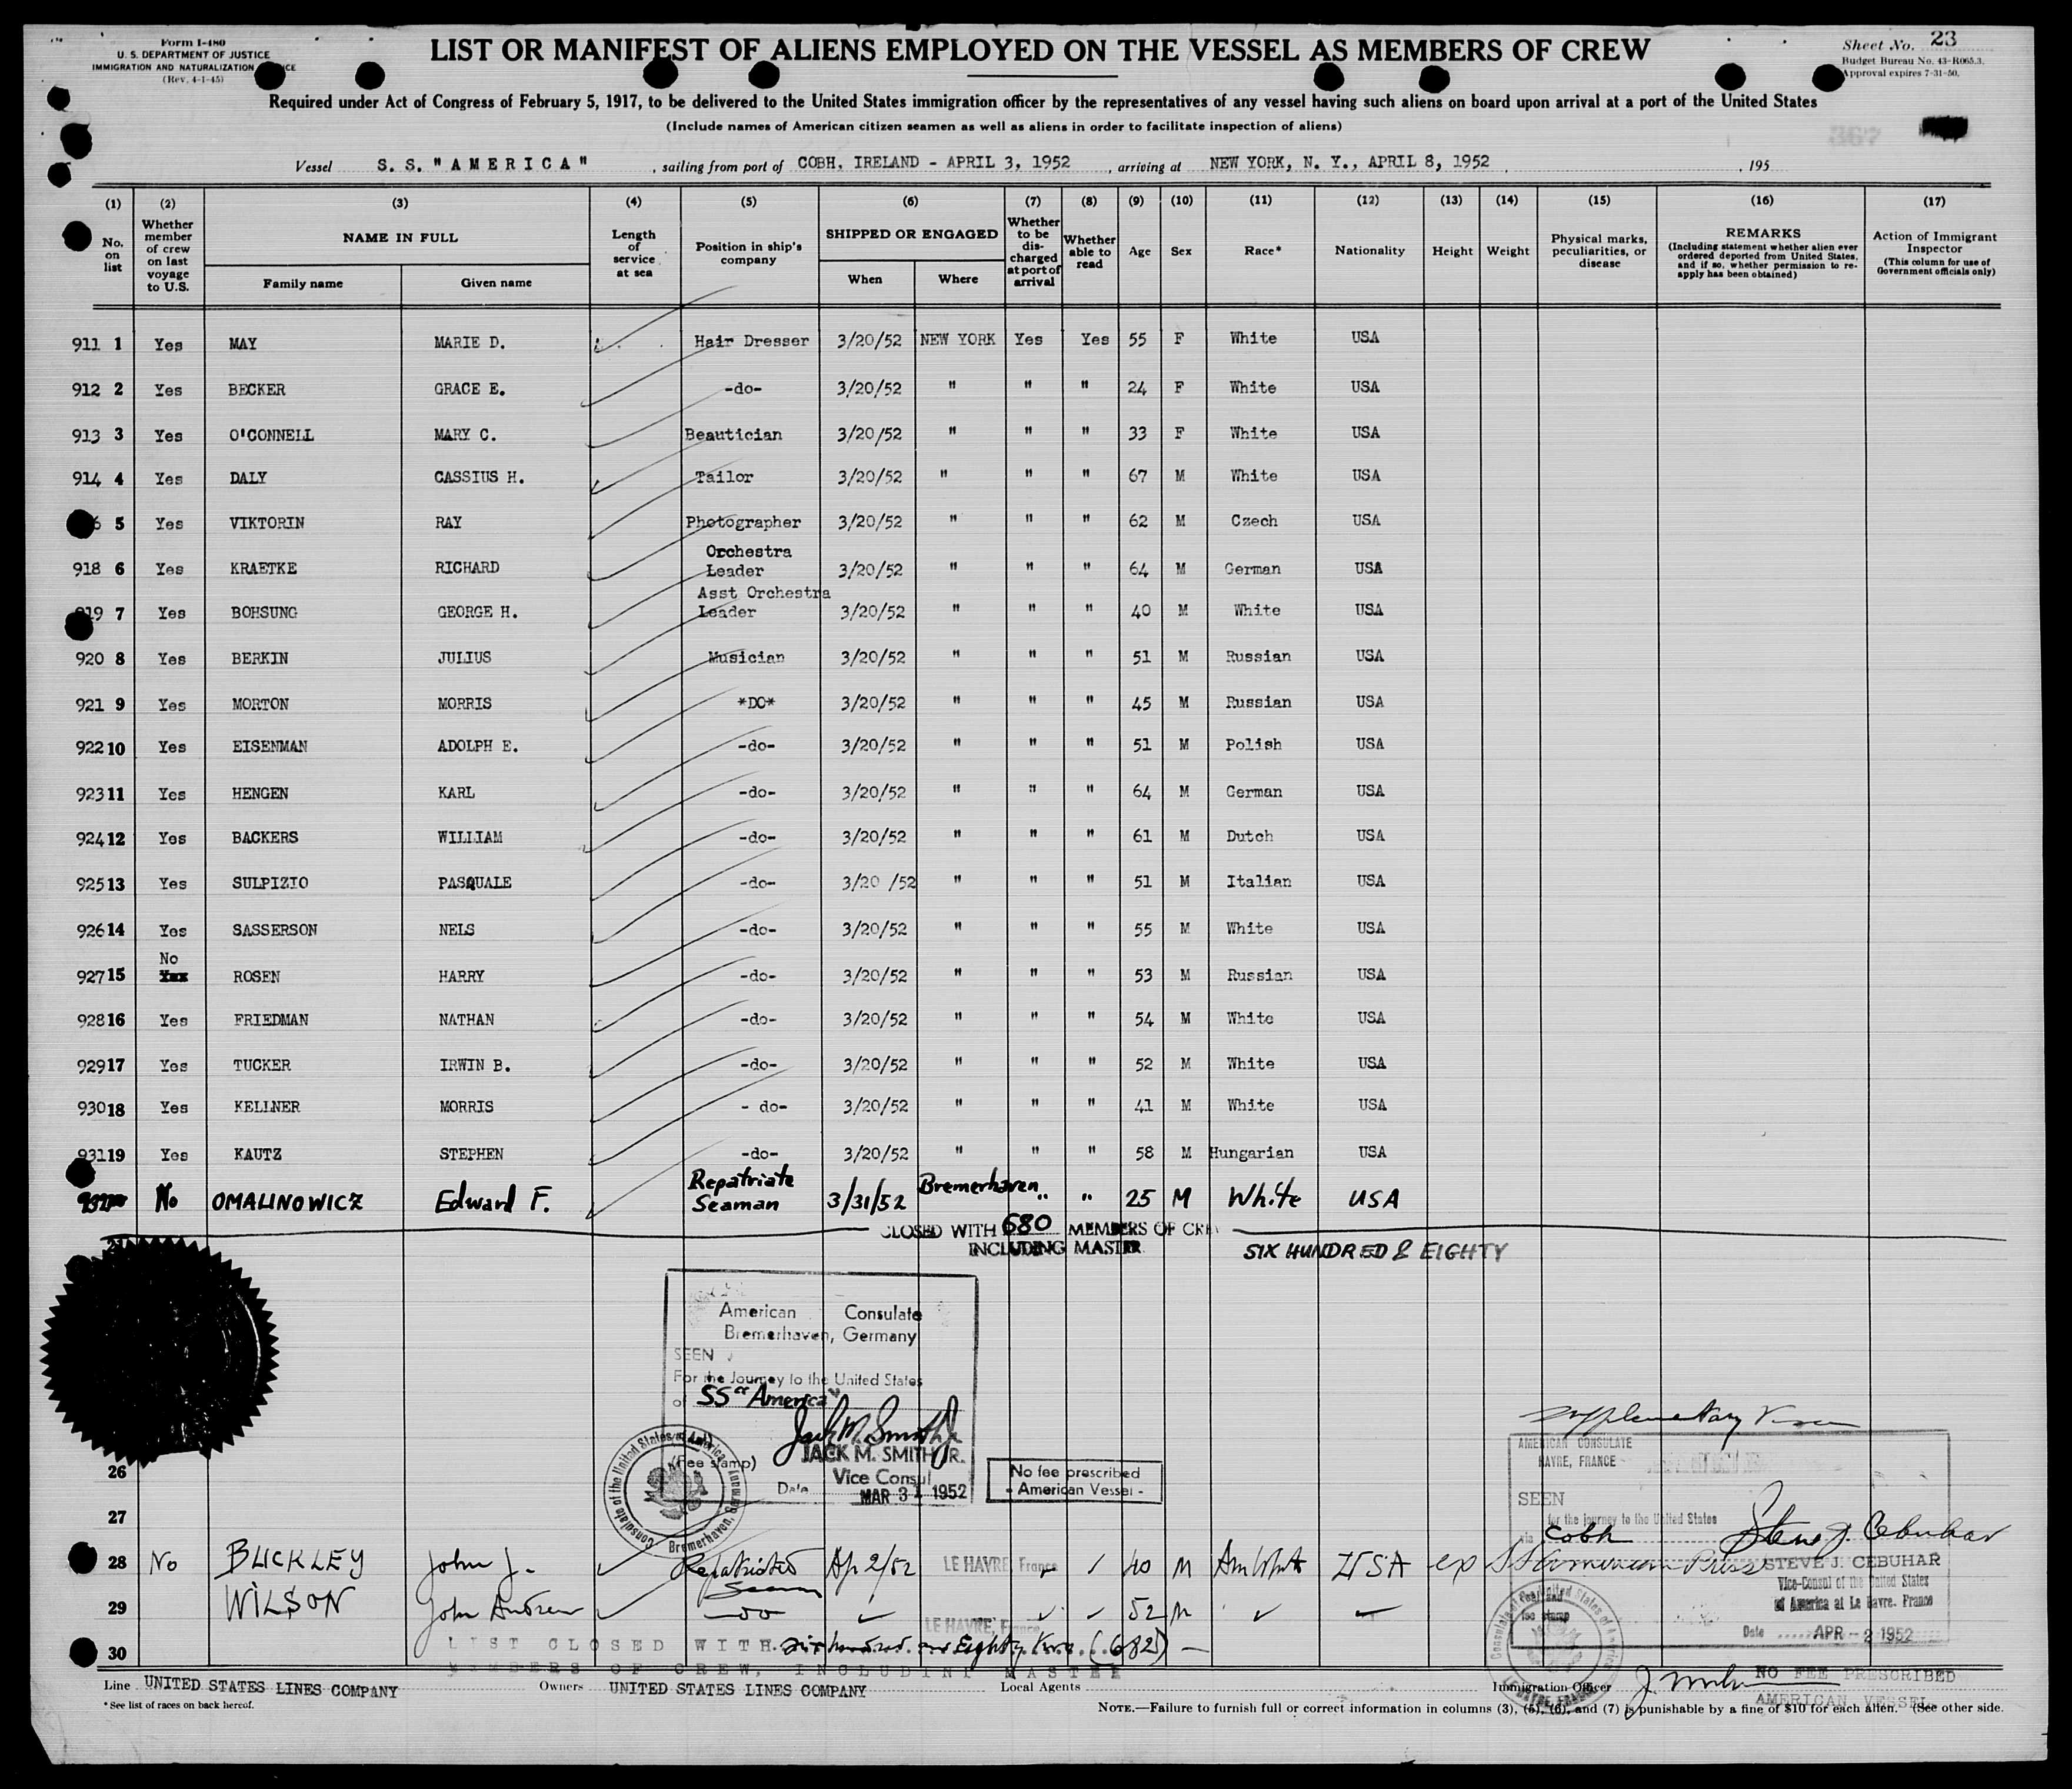 Form I-480
U. S. DEPARTMENT OF JUSTICE
IMMIGRATION AND NATURALIZATION
(Rev. 4-1-45)
LIST OR MANIFEST OF ALIENS EMPLOYED ON THE VESSEL AS MEMBERS OF CREW
Sheet No. 23
Budget Bureau No. 43-R065.3.
Approval expires 7-31-50.
Required under Act of Congress of February 5, 1917, to be delivered to the United States immigration officer by the representatives of any vessel having such aliens on board upon arrival at a port of the United States
(Include names of American citizen seamen as well as aliens in order to facilitate inspection of aliens)
367
Vessel S. S. "AMERICA" , sailing from port of COBH, IRELAND - APRIL 3, 1952 , arriving at NEW YORK, N. Y., APRIL 8, 1952 , 195
(1) (2) (3) (4) (5) (6) (7) (8) (9) (10) (11) (12) (13) (14) (15) (16) (17)
No. on list
Whether member of crew on last voyage to U.S.
NAME IN FULL
Family name Given name
Length of service at sea
Position in ship's company
SHIPPED OR ENGAGED
When Where
Whether to be discharged at port of arrival
Whether able to read
Age Sex Race* Nationality Height Weight
Physical marks, peculiarities, or disease
REMARKS
(Including statement whether alien ever ordered deported from United States, and if so, whether permission to reapply has been obtained)
Action of Immigrant Inspector
(This column for use of Government officials only)
911 1 Yes MAY MARIE D. Hair Dresser 3/20/52 NEW YORK Yes Yes 55 F White USA
912 2 Yes BECKER GRACE E. -do- 3/20/52 " " " 24 F White USA
913 3 Yes O'CONNELL MARY C. Beautician 3/20/52 " " " 33 F White USA
914 4 Yes DALY CASSIUS H. Tailor 3/20/52 " " " 67 M White USA
5 Yes VIKTORIN RAY Photographer 3/20/52 " " " 62 M Czech USA
918 6 Yes KRAETKE RICHARD Orchestra Leader 3/20/52 " " " 64 M German USA
919 7 Yes BOHSUNG GEORGE H. Asst Orchestra Leader 3/20/52 " " " 40 M White USA
920 8 Yes BERKIN JULIUS Musician 3/20/52 " " " 51 M Russian USA
921 9 Yes MORTON MORRIS *DO* 3/20/52 " " " 45 M Russian USA
922 10 Yes EISENMAN ADOLPH E. -do- 3/20/52 " " " 51 M Polish USA
923 11 Yes HENGEN KARL -do- 3/20/52 " " " 64 M German USA
924 12 Yes BACKERS WILLIAM -do- 3/20/52 " " " 61 M Dutch USA
925 13 Yes SULPIZIO PASQUALE -do- 3/20 /52 " " " 51 M Italian USA
926 14 Yes SASSERSON NELS -do- 3/20/52 " " " 55 M White USA
927 15 No ROSEN HARRY -do- 3/20/52 " " " 53 M Russian USA
928 16 Yes FRIEDMAN NATHAN -do- 3/20/52 " " " 54 M White USA
929 17 Yes TUCKER IRWIN B. -do- 3/20/52 " " " 52 M White USA
930 18 Yes KELLNER MORRIS - do- 3/20/52 " " " 41 M White USA
931 19 Yes KAUTZ STEPHEN -do- 3/20/52 " " " 58 M Hungarian USA
No OMALINOWICZ Edward F. Repatriate Seaman 3/31/52 Bremerhaven " " 25 M White USA
CLOSED WITH 680 MEMBERS OF CREW
INCLUDING MASTER
SIX HUNDRED & EIGHTY
American Consulate
Bremerhaven, Germany
SEEN
For the Journey to the United States
of SS "America"
Jack M. Smith Jr.
JACK M. SMITH JR.
(Fee stamp)
Vice Consul
Date MAR 31 1952
No fee prescribed
- American Vessel -
Consulate of the United States of America Bremerhaven, Germany
Supplementary Visa
AMERICAN CONSULATE
HAVRE, FRANCE
SEEN
for the journey to the United States
via Cobh
Steve J. Cebuhar
STEVE J. CEBUHAR
Vice-Consul of the United States
of America at Le Havre. France
fee stamp
Date APR - 2 1952
26
27
28 No BUCKLEY John J. Repatriated Seaman Ap 2/52 LE HAVRE, France 40 M Am White USA ex SS
29 WILSON John Andrew —do— LE HAVRE, France 52 M
30
LIST CLOSED WITH six hundred and Eighty two (682) —
MEMBERS OF CREW, INCLUDING MASTER
Line UNITED STATES LINES COMPANY Owners UNITED STATES LINES COMPANY Local Agents Immigration Officer
NO FEE PRESCRIBED
AMERICAN VESSEL
* See list of races on back hereof.
NOTE.—Failure to furnish full or correct information in columns (3), (5), (6), and (7) is punishable by a fine of $10 for each alien. (See other side.